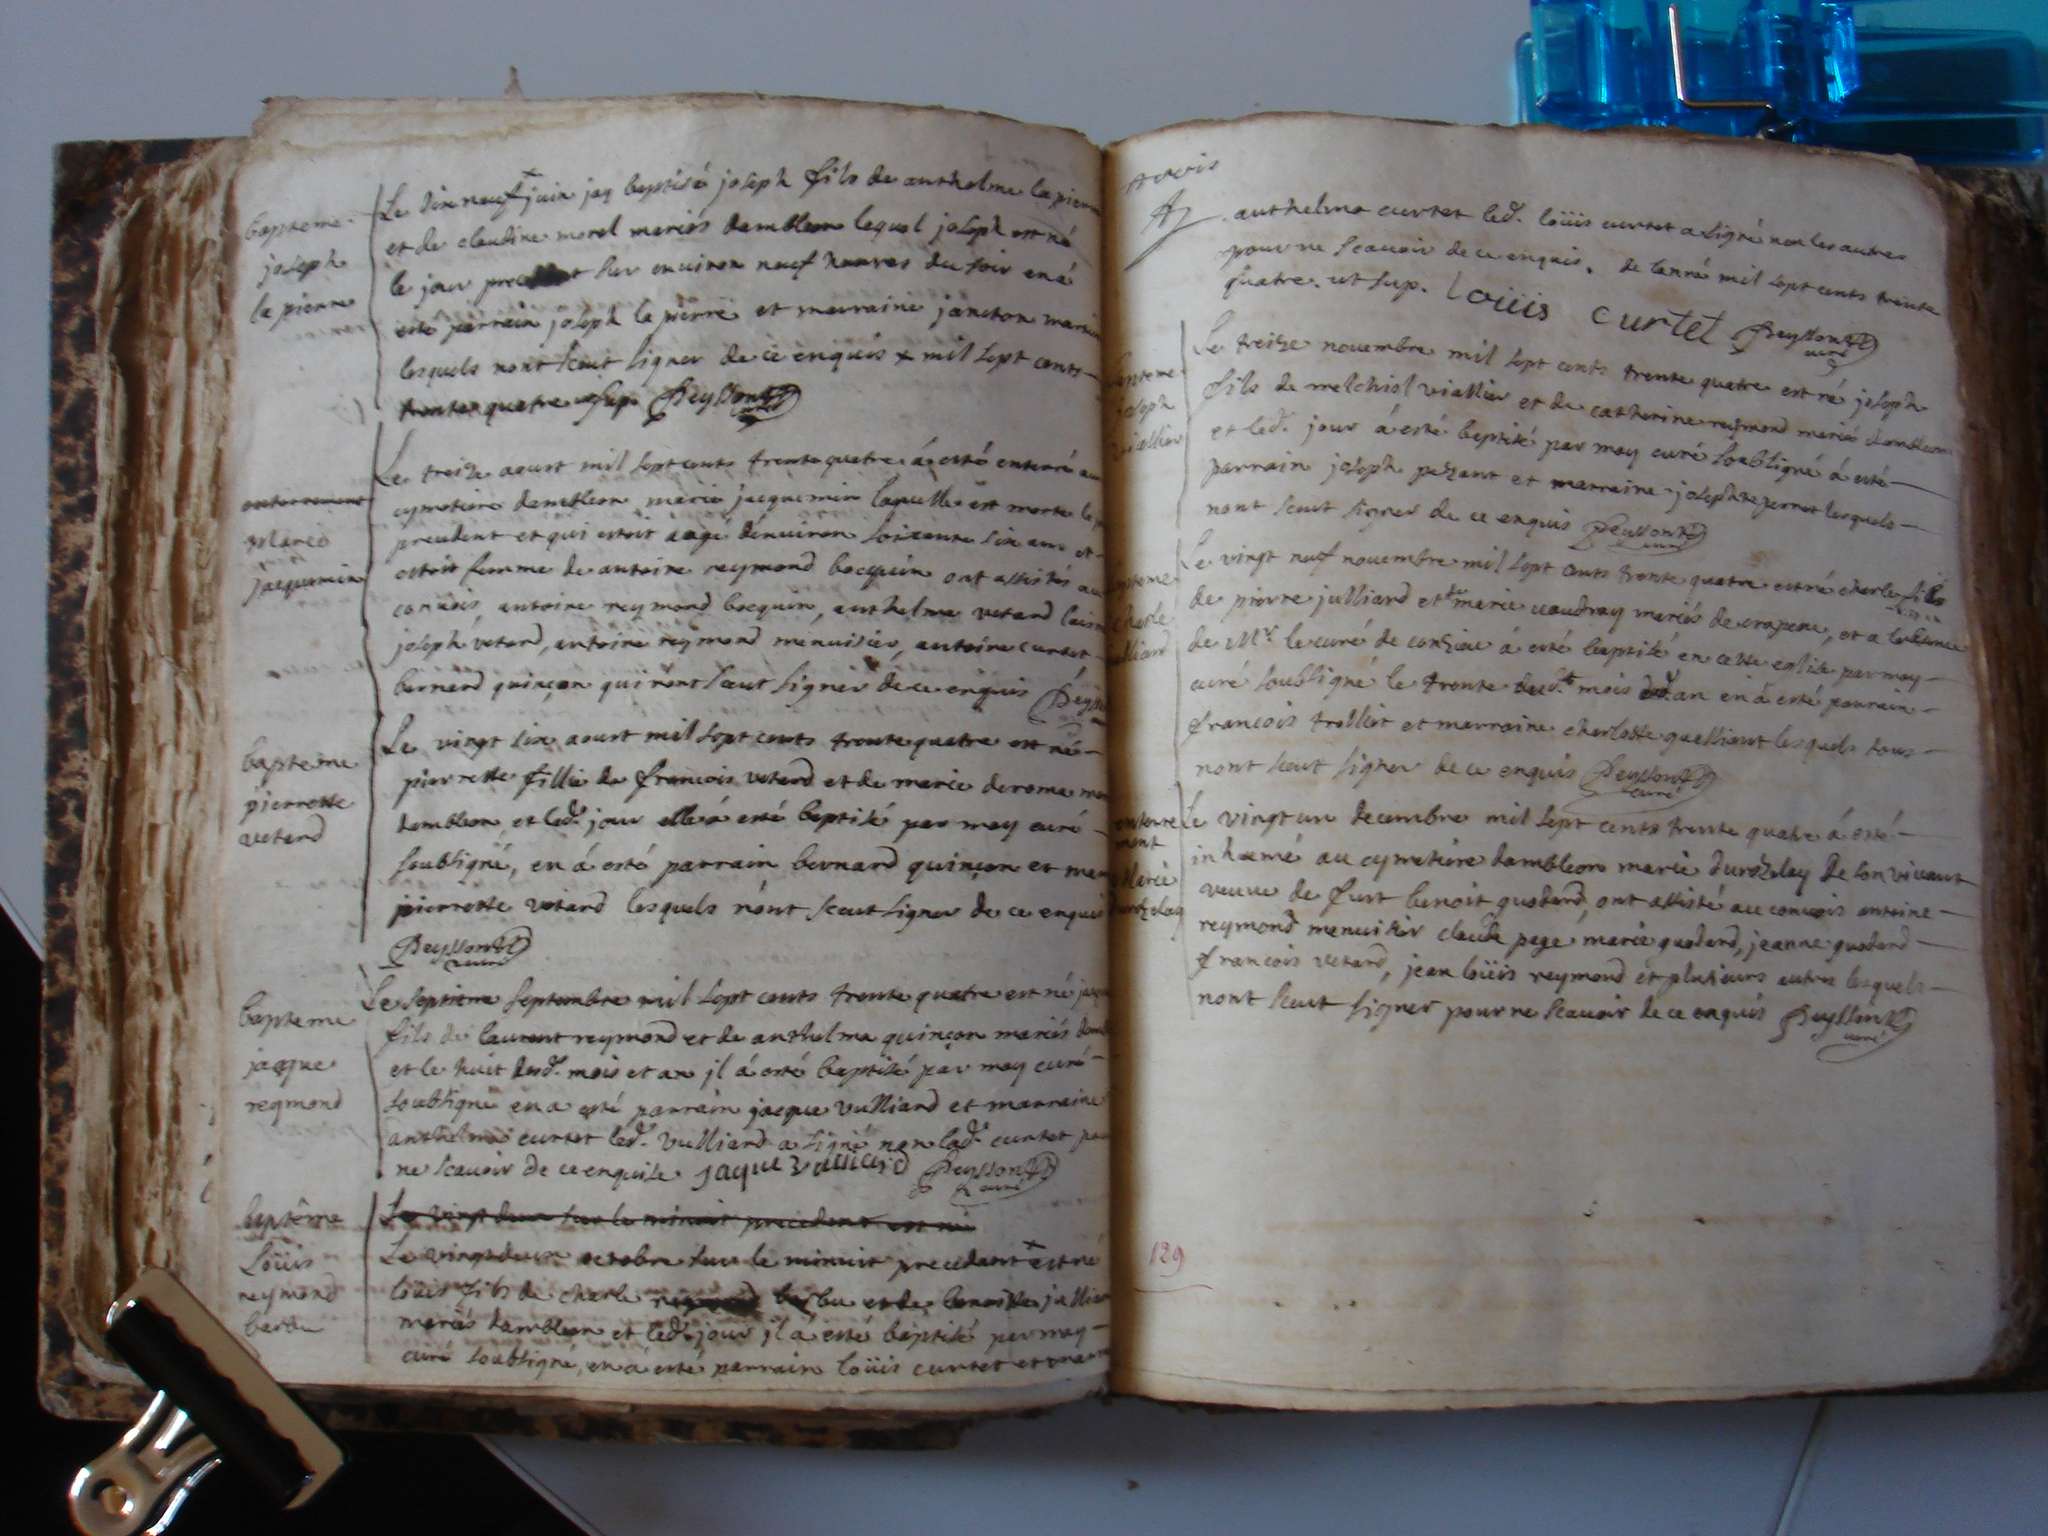 bapteme
joseph
la pierre
Le dix neuf juin jay baptisé joseph fils de anthelme la pierre
et de claudine morel mariés dambleon lequel joseph est né
le jour sur environ neuf heures du soir en a
esté parrain joseph la pierre et marraine martin
lesquels nont sceut signer de ce enquis x mil sept cents
trente quatre Sup. Peysson
curé
enterrement
Marie
jacquemin
Le treize aoust mil sept cents trente quatre á esté enterré au
cymetiere dambleon marie jacquemin laquelle est morte le
et qui estoit aagé denviron soixante six ans et
estoit femme de antoine reymond bocquin ont assistés au
convois antoine reymond bocquin, anthelme vetard
joseph vetard, antoine reymond menuisier, antoine curtet
bernard quinçon qui nont sceut signer de ce enquis
bapteme
pierrette
vetard
Le vingt six aoust mil sept cents trente quatre est née
pierrette fillie de francois vetard et de marie deroma
dambleon et led. jour elle á esté baptisé par moy curé
soubsigné, en á esté parrain bernard quinçon et
pierrette vetard lesquels nont sceut signer de ce enquis
Peysson
curé
bapteme
jacque
reymond
Le septieme septembre mil sept cents trente quatre est né
fils de laurent reymond et de anthelma quinçon mariés
et le huit dud. mois et an jl á esté baptisé par moy curé
soubsigné en a esté parrain jacque vulliard et marraine
anthelma curtet led. vulliard a signé non lad. curtet
ne scavoir de ce enquise jaque vulliard Peysson
curé
baptême
Loüis
reymond
barbu
Le vingt deux sur le minuit precedent est né
Le vingtdeux octobre sur le minuit precedant est né
loüis fils de charle barbu et de benoitte
mariés dambleon et led. jour jl á esté baptisé par moy
curé soubsigné, en á esté parrain loüis curtet et
anthelma curtet led. loüis curtet a signé non les autres
pour ne scavoir de ce enquis. de lanné mil sept cents trente
quatre. ut sup. loüis curtet Peysson
curé
bapteme
joseph
viallier
Le treize novembre mil sept cents trente quatre est né joseph
fils de viallier et de catherine reymond mariés dambleon
et led. jour á esté baptisé par moy curé soubsigné á esté
parrain joseph pezant et marraine josephte perret lesquels
nont sceut signer de ce enquis Peysson
curé
bapteme
charle
julliard
Le vingt neuf novembre mil sept cents trente quatre est né charle fils
de pierre julliard et de marie mariés de crapene, et a
de Mr. le curé de á esté baptisé en cette eglise par moy
curé soubsigné le trente dud. mois an en á esté parrain
francois trollier et marraine charlotte lesquels tous
nont sceut signer de ce enquis Peysson
curé
enterre
ment
Marie
Le vingt un decembre mil sept cents trente quatre á esté
inhumé au cymetiere dambleon marie de son vivant
veuve de furt benoit godard, ont assisté au convois antoine
reymond menuisier claude page marie godard, jeanne godard
francois vetard, jean loüis reymond et plusieurs autres lesquels
nont sceut signer pour ne scavoir de ce enquis Peysson
curé
129